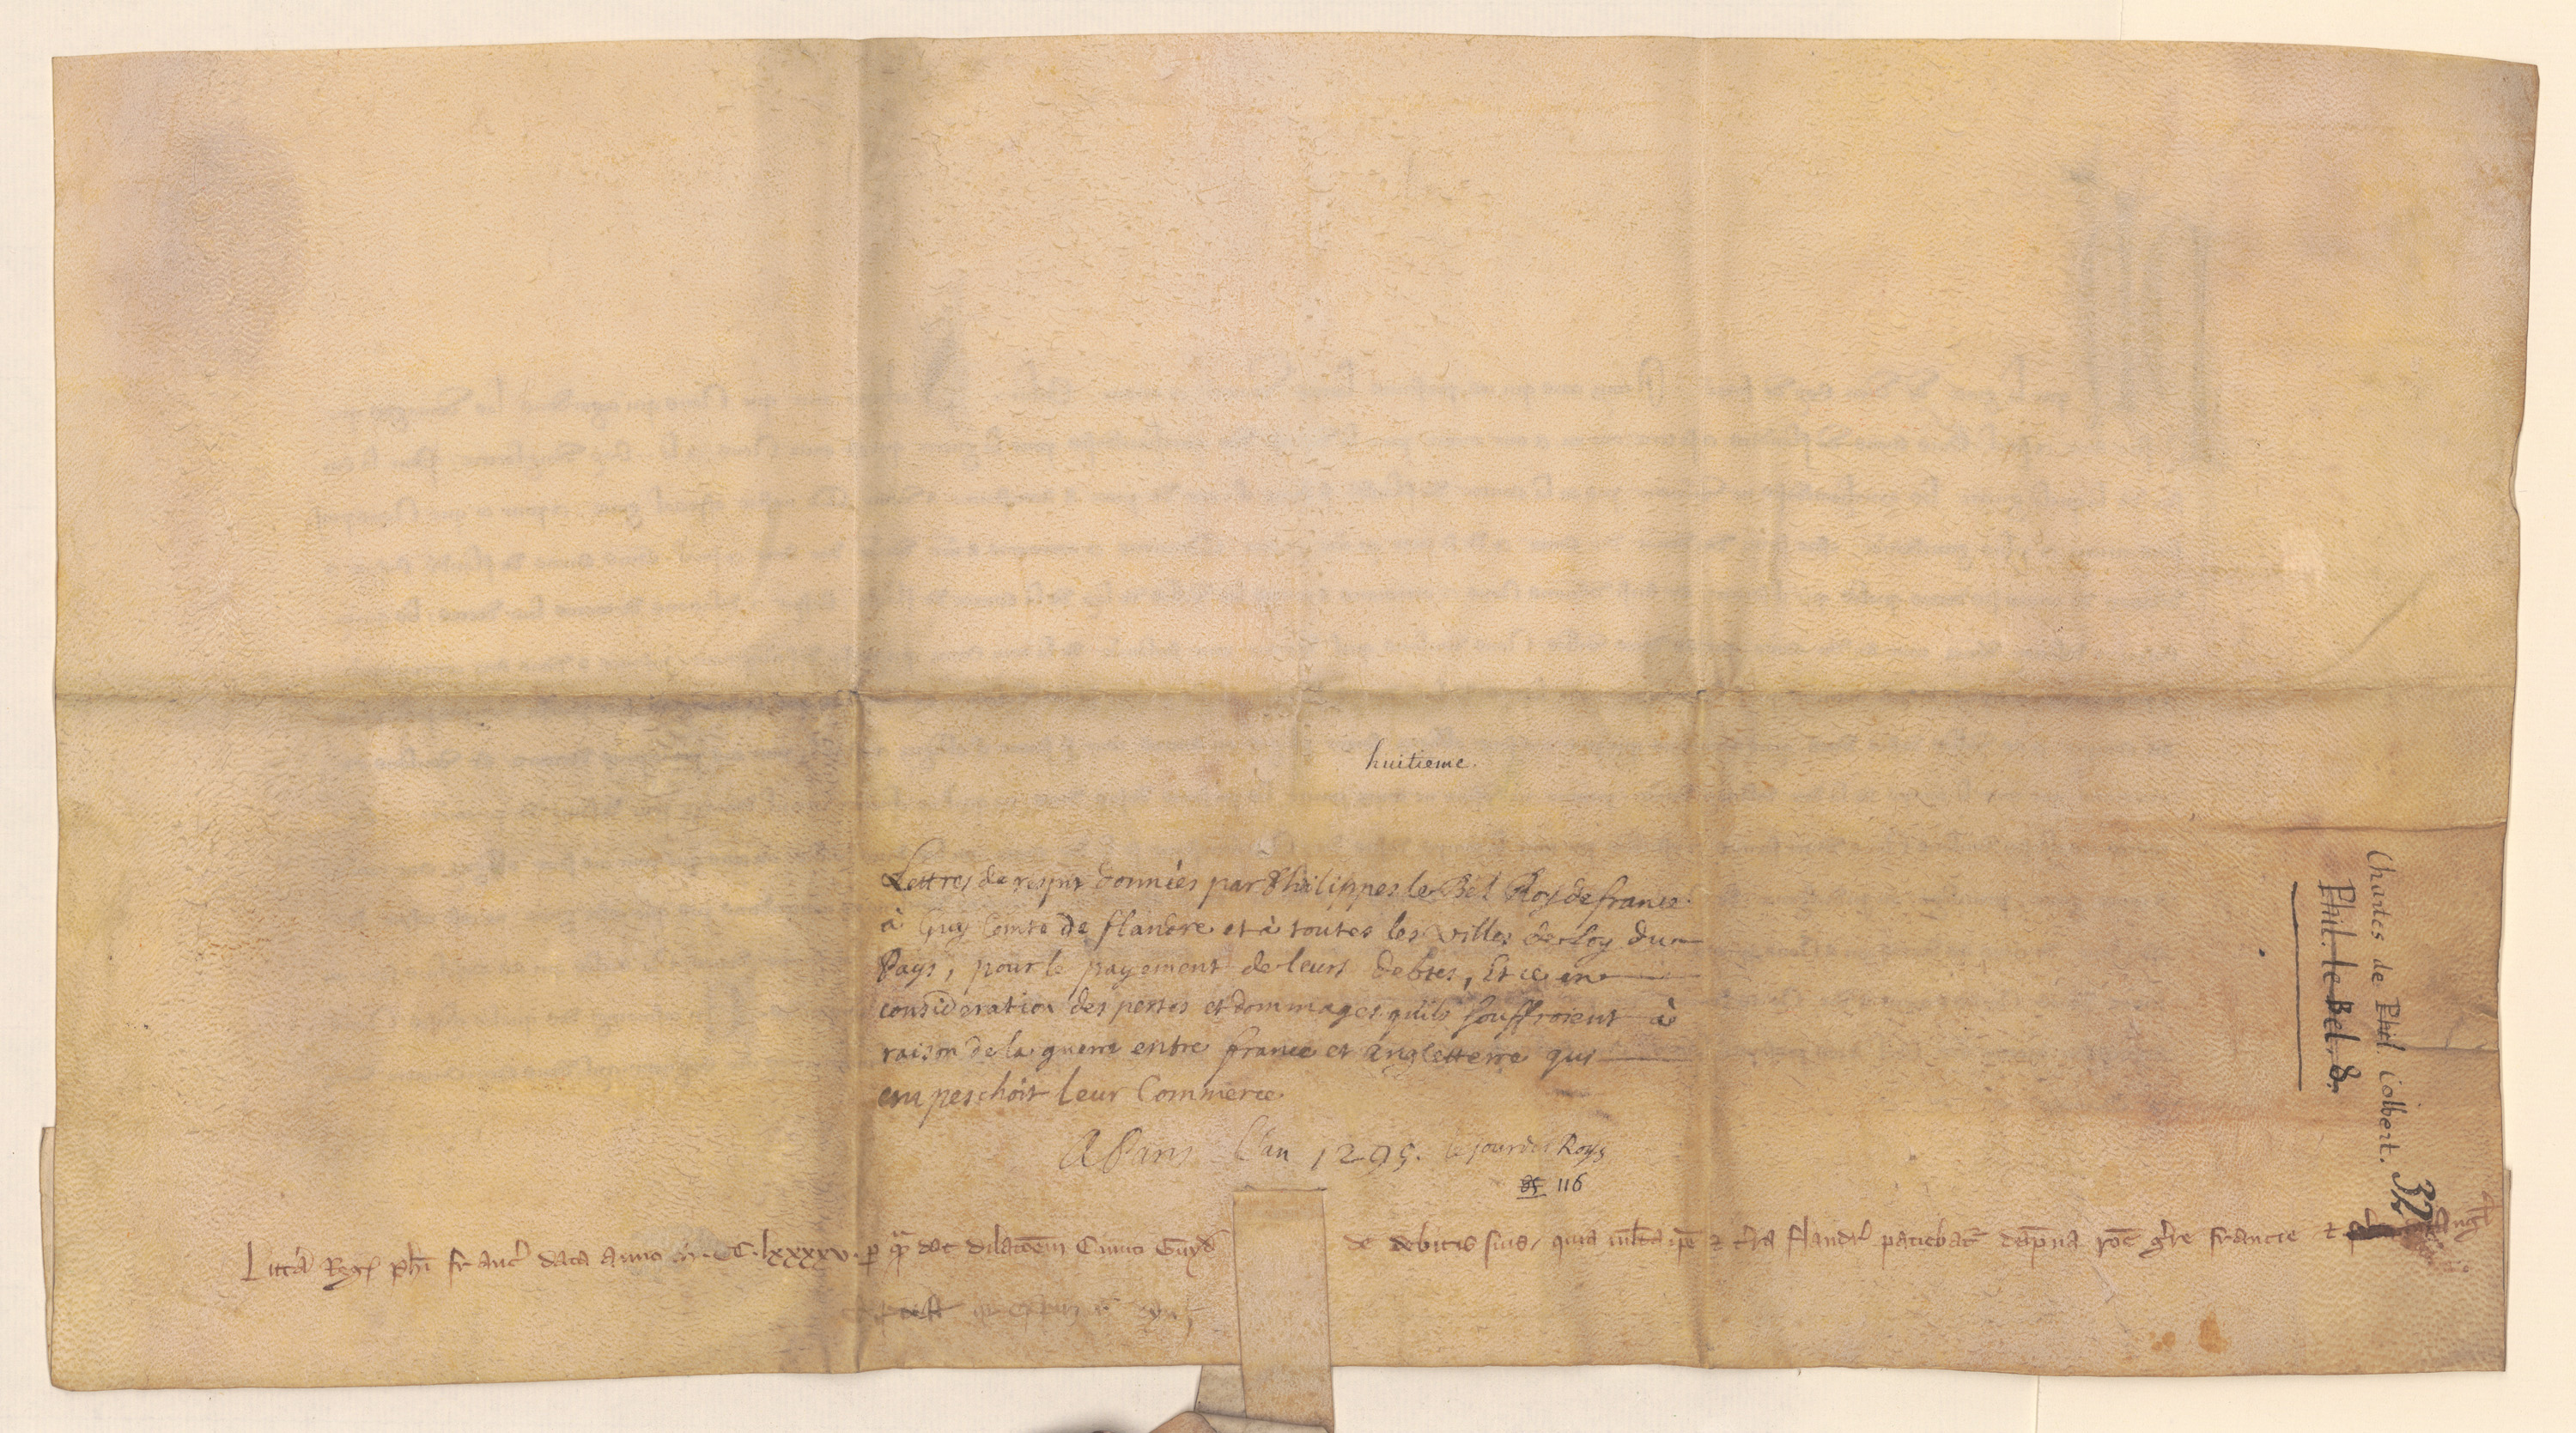 huitieme.
Lettres de respit données par Philippes le Bel Roy de france
à Guy Comte de flandre et à toutes les villes de Loy du
Pays, pour le payement de leurs debtes, Et ce en
consideration des pertes et dommages qu'ils souffroient à
raison de la guerre entre france et angletterre qui
empeschoit leur Commerce
A Paris l'an 1295. le jour des Roys
116
Litt'a Reg' ph'i franc' data anno M. CC. lxxxxv. p q'm dat dilac'oem Comiti Guyd' de debitis suis, quia m'lta ip'e z t'ra fland'r patiebat' dampna ro'e g'rre francie z Angl'
Chartes de Phil. Colbert. 32
Phil. le Bel. 8.